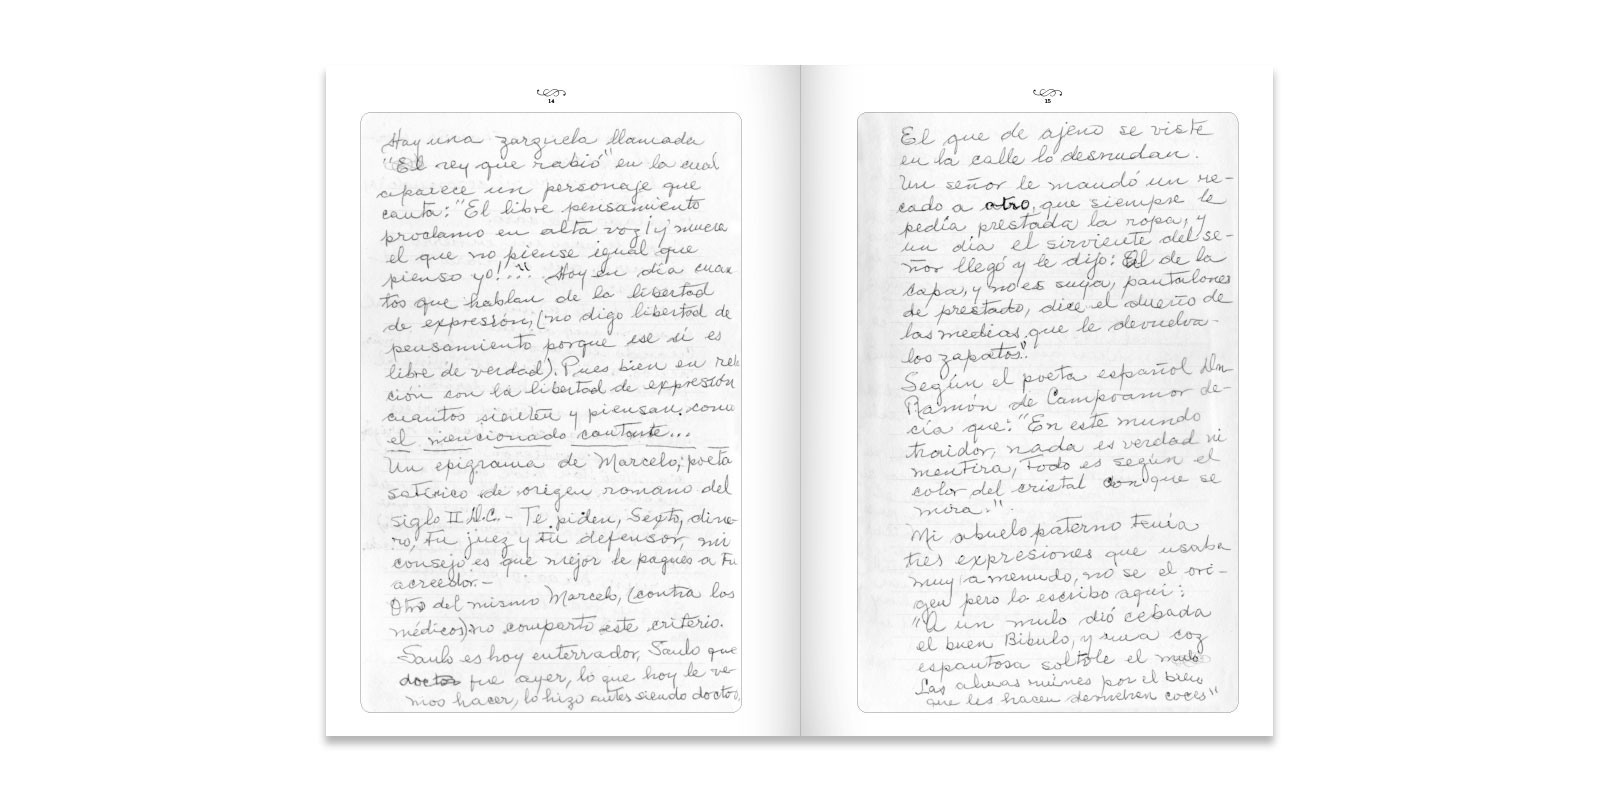 14
Hay una zarzuela llamada
"El rey que rabió" en la cual
aparece un personaje que
canta: "El libre pensamiento
proclamo en alta voz ¡y muera
el que no piense igual que
pienso yo!..." Hoy en día cuan
tos que hablan de la libertad
de expresión, (no digo libertad de
pensamiento porque ese sí es
libre de verdad). Pues bien en rela
ción con la libertad de expresión
cuantos sienten y piensan como
el mencionado cantante...
Un epigrama de Marcelo, poeta
satírico de origen romano del
siglo II D.C.- Te piden, Sexto, dine-
ro, tu juez y tu defensor, mi
consejo es que mejor le pagues a tu
acreedor.-
Otro del mismo Marcelo, (contra los
médicos) no comparto este criterio.
Saulo es hoy enterrador, Saulo que
doctor fue ayer, lo que hoy le ve-
mos hacer, lo hizo antes siendo doctor.
15
El que de ajeno se viste
en la calle lo desnudan.
Un señor le mandó un re-
cado a otro, que siempre le
pedía prestada la ropa, y
un día el sirviente del se-
ñor llegó y le dijo: El de la
capa, y no es suya, pantalones
de prestado, dice el dueño de
las medias que le devuelva
los zapatos".
Según el poeta español Dn
Ramón de Campoamor de-
cía que: "En este mundo
traidor, nada es verdad ni
mentira, todo es según el
color del cristal con que se
mira.".
Mi abuelo paterno tenía
tres expresiones que usaba
muy a menudo, no se el ori-
gen pero lo escribo aquí:
"A un mulo dió cebada
el buen Bibulo, y una coz
espantosa soltóle el mulo
Las almas ruines por el bien
que les hacen devuelven coces"